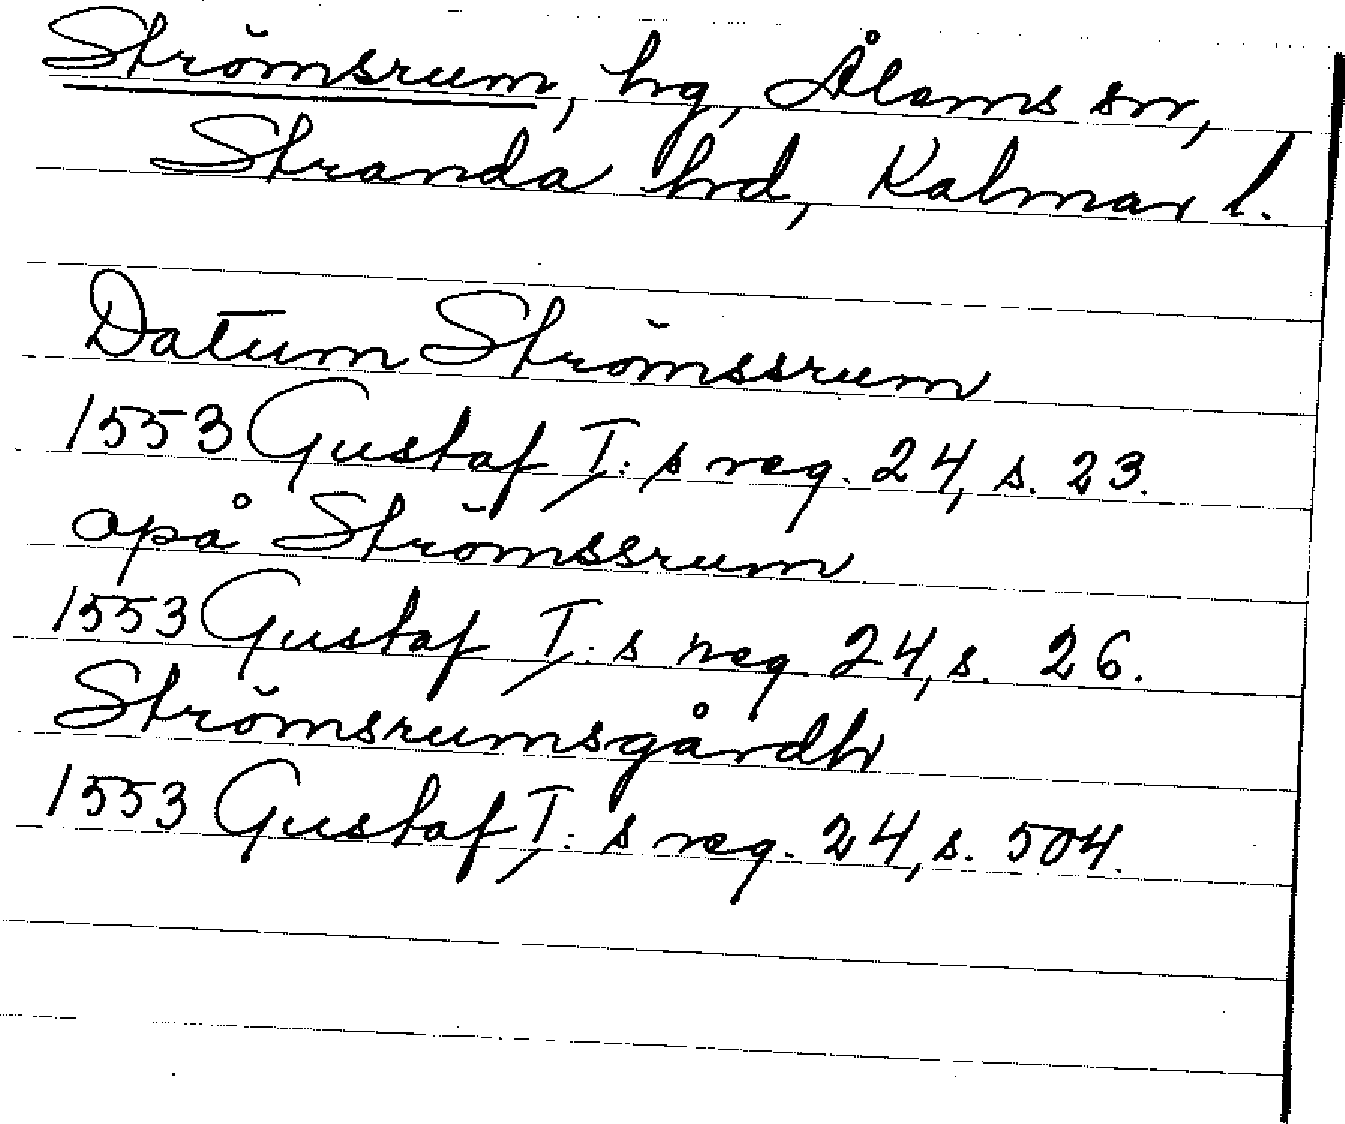 Strömsrum, hg, Ålems sn,
Stranda hd, Kalmar l.
Datum Strömssrum
1553 Gustaf I: s reg. 24, s. 23.
opå Strömssrum
1553 Gustaf I: s reg 24, s. 26.
Strömsrumsgårdh
1553 Gustaf I: s reg. 24, s. 504.